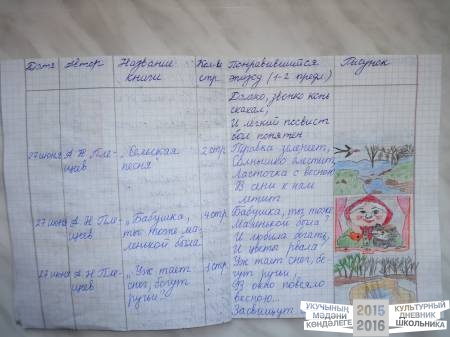 Дата Автор Название книги Кол-во стр. Понравившийся эпизод (1-2 предл.) Рисунок
Далеко, звонко конь
скакал,
И лёгкий посвист
был понятен
27 июня А. Н. Плещеев „Сельская песня" 2 стр Травка зеленеет,
Солнышко блестит
Ласточка с весною
В сени к нам
летит
27 июня А. Н. Плещеев „Бабушка, ты тоже маленькой была" 4 стр Бабушка, ты тоже
Маленькой была?
И любила бегать
И цветы рвала?
27 июня А. Н. Плещеев „Уж тает снег, бегут ручьи" 1 стр Уж тает снег, бегут ручьи,
В окно повеяло
весною...
Засвищут
УКУЧЫНЫҢ
МӘДӘНИ
КӨНДӘЛЕГЕ
2015
2016
КУЛЬТУРНЫЙ
ДНЕВНИК
ШКОЛЬНИКА